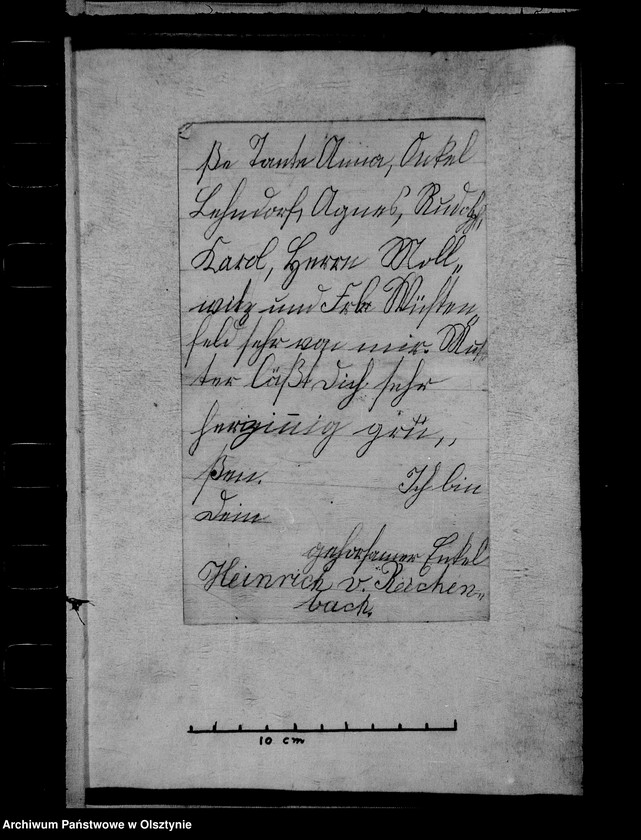 ße Tante Anna, Onkel
Lehndorf, Agnes, Rudolf,
Karol, Herrn Moll„
witz und Frl. Wüsten„
feld sehr von mir. Mut„
ter läßt Dich sehr
herzinnig grü„
ßen. Ich bin
Dein
gehorsamer Enkel
Heinrich v. Rachen„
bach.
10 cm
Archiwum Państwowe w Olsztynie